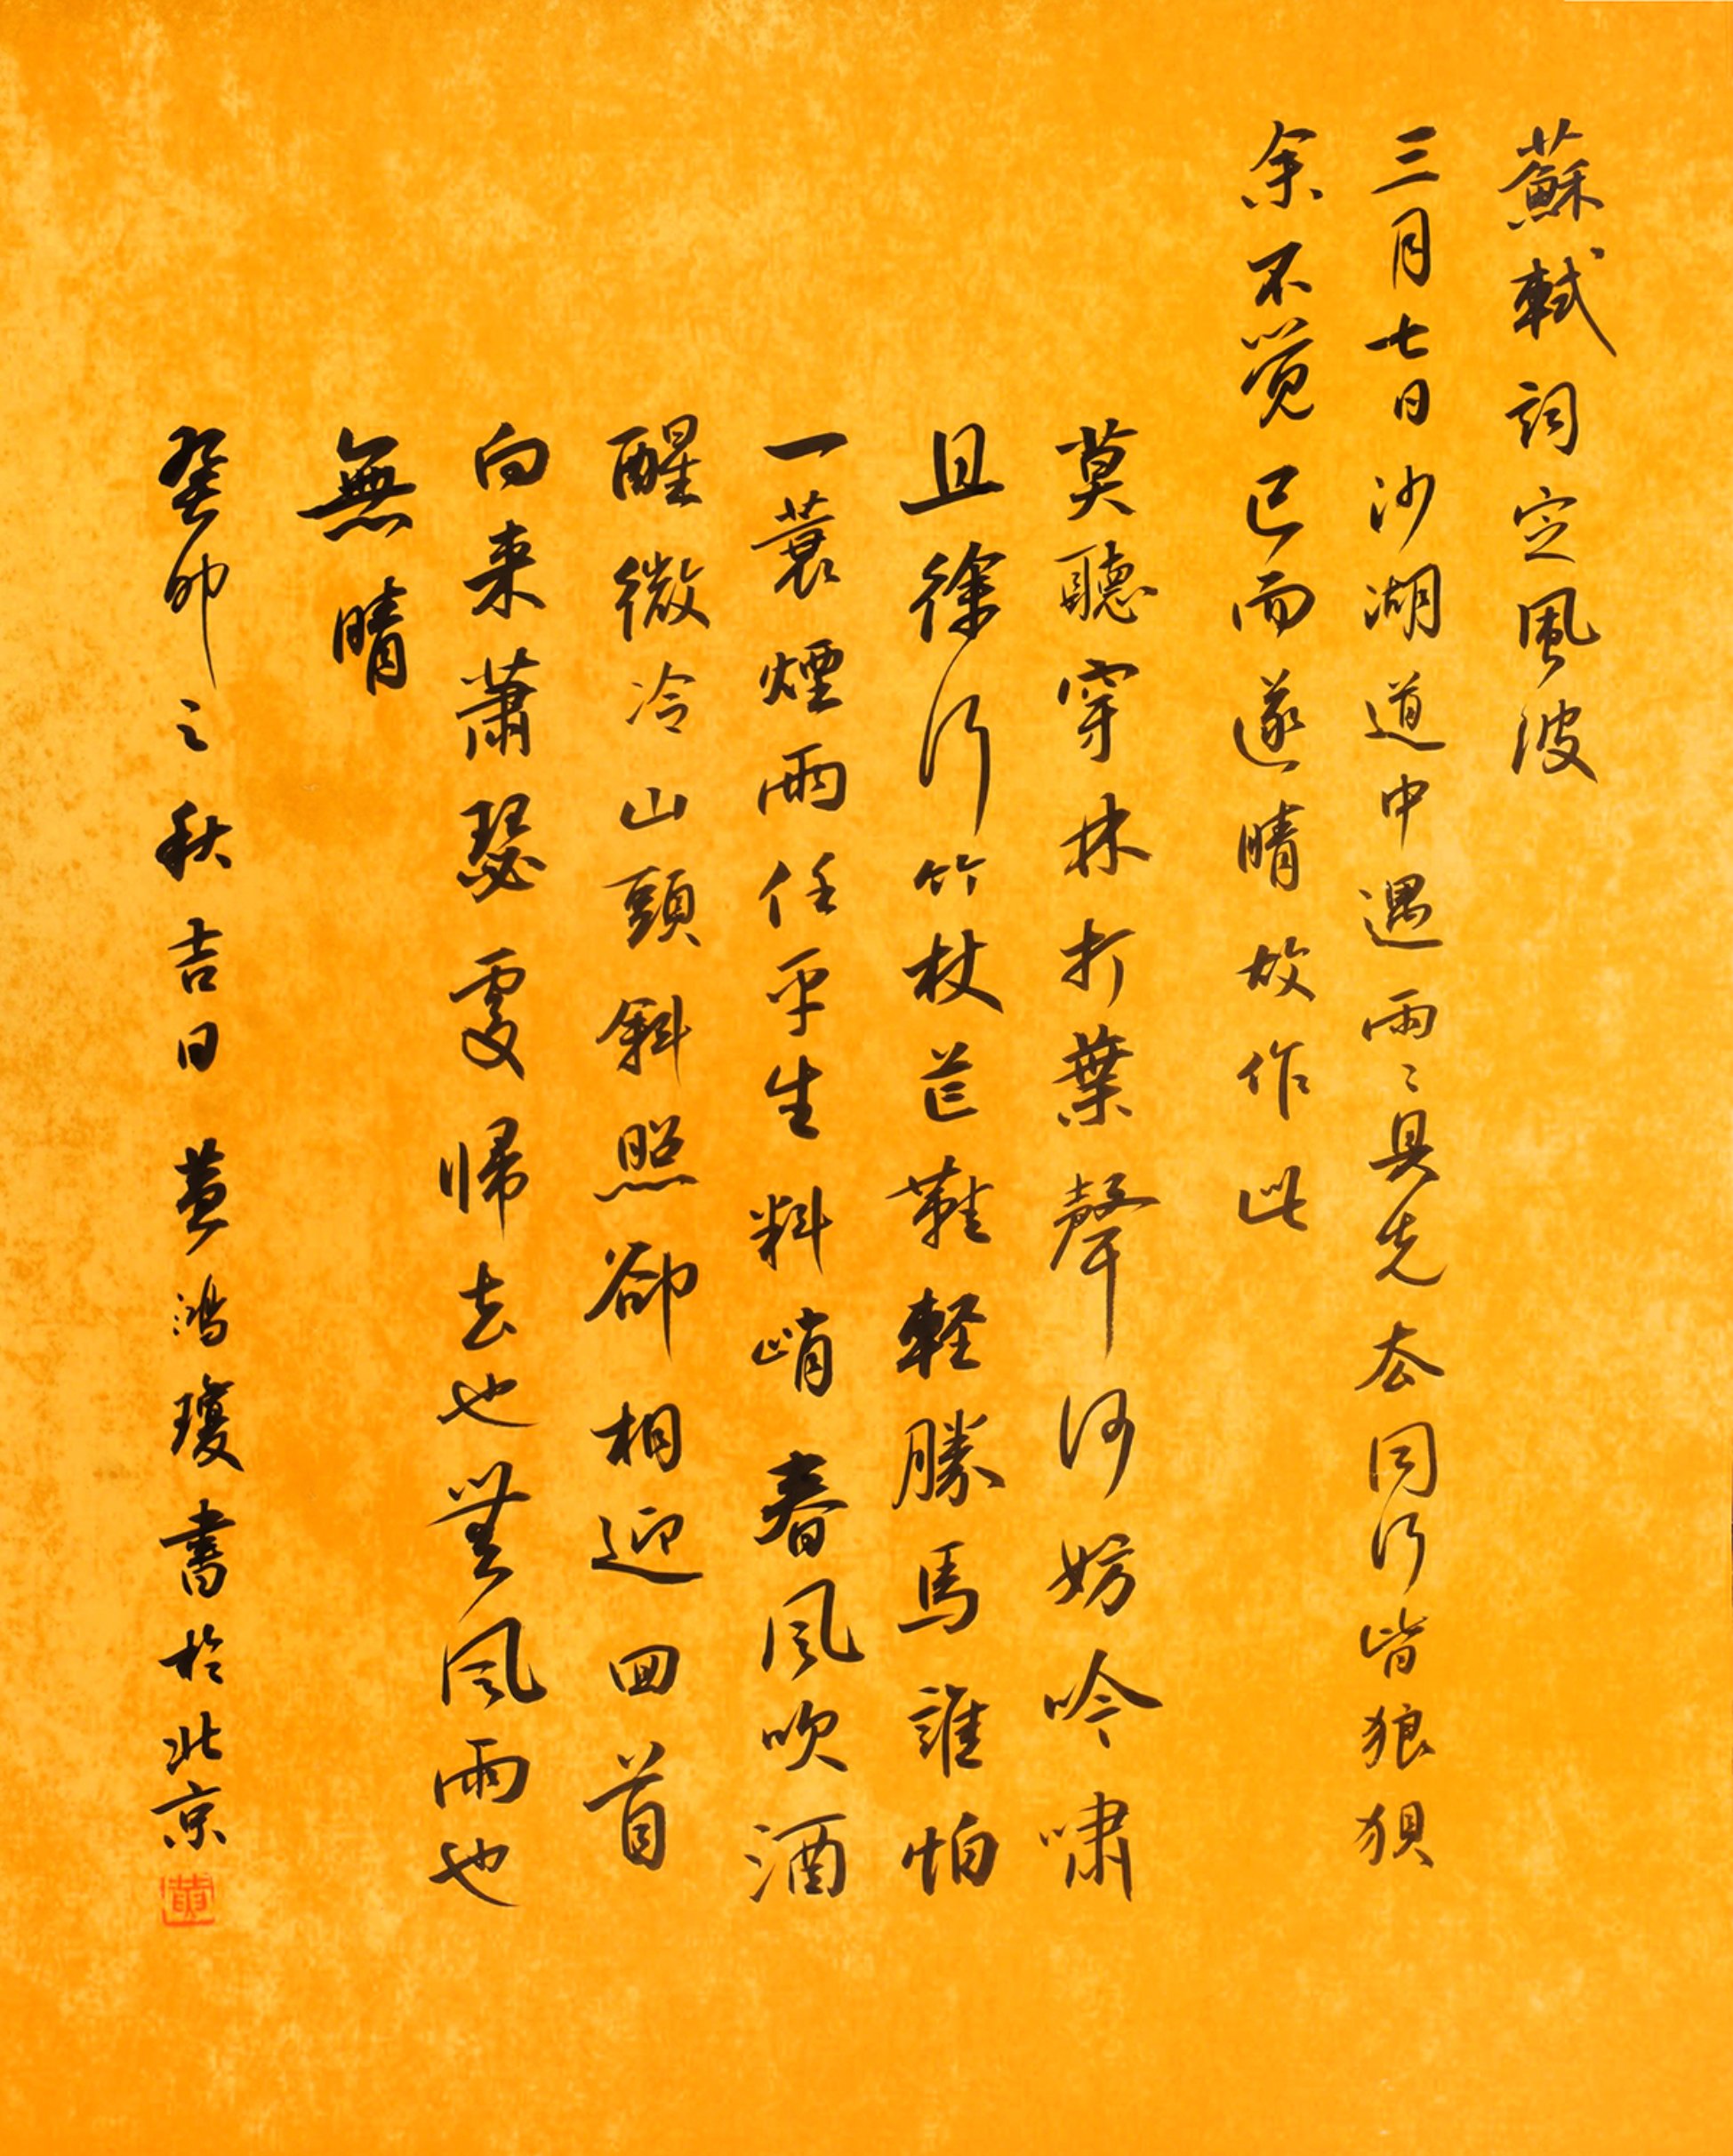 蘇軾詞定風波
三月七日沙湖道中遇雨雨具先去同行皆狼狽
余不覺已而遂晴故作此
莫聽穿林打葉聲何妨吟嘯
且徐行竹杖芒鞋輕勝馬誰怕
一蓑煙雨任平生料峭春風吹酒
醒微冷山頭斜照卻相迎回首
向来蕭瑟處帰去也無風雨也
無晴
癸卯之秋吉日黃鴻瓊書於北京
黃